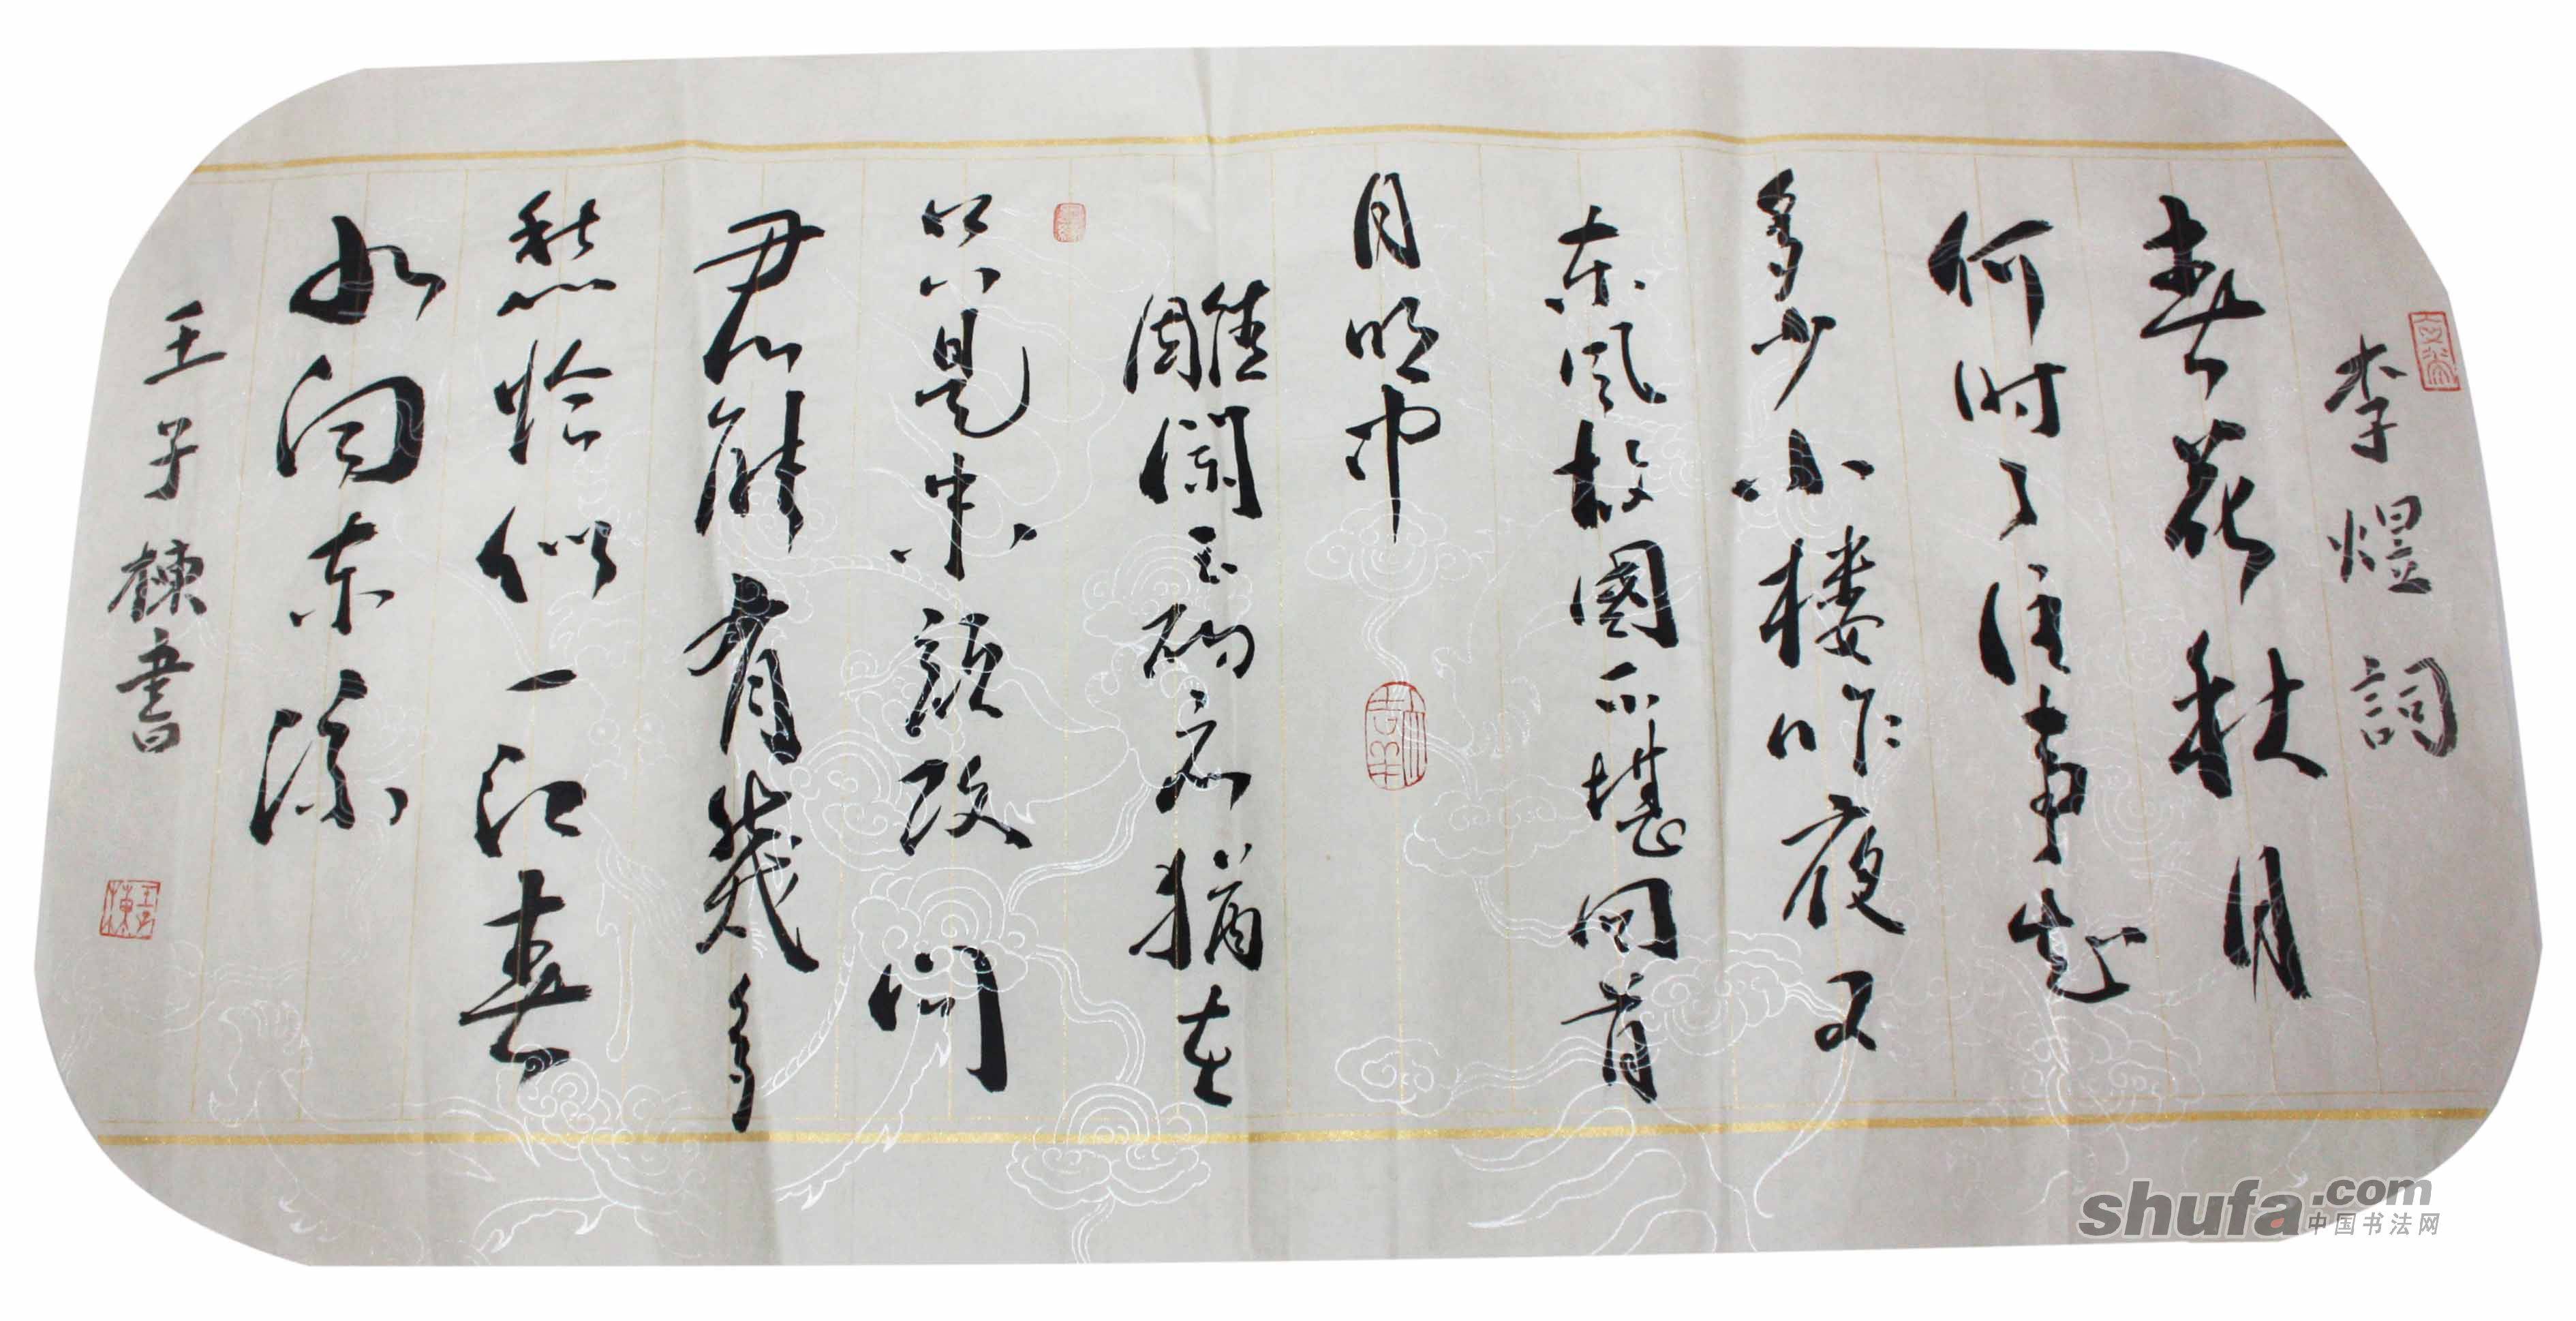 李煜詞
春花秋月
何时了往事知
多少小楼昨夜又
东风故國不堪回首
月明中
雕阑玉砌应猶在
只是朱颜改问
君能有幾多
愁恰似一江春
水向东流
王子棟書
王子棟
shufa.com
中国书法网